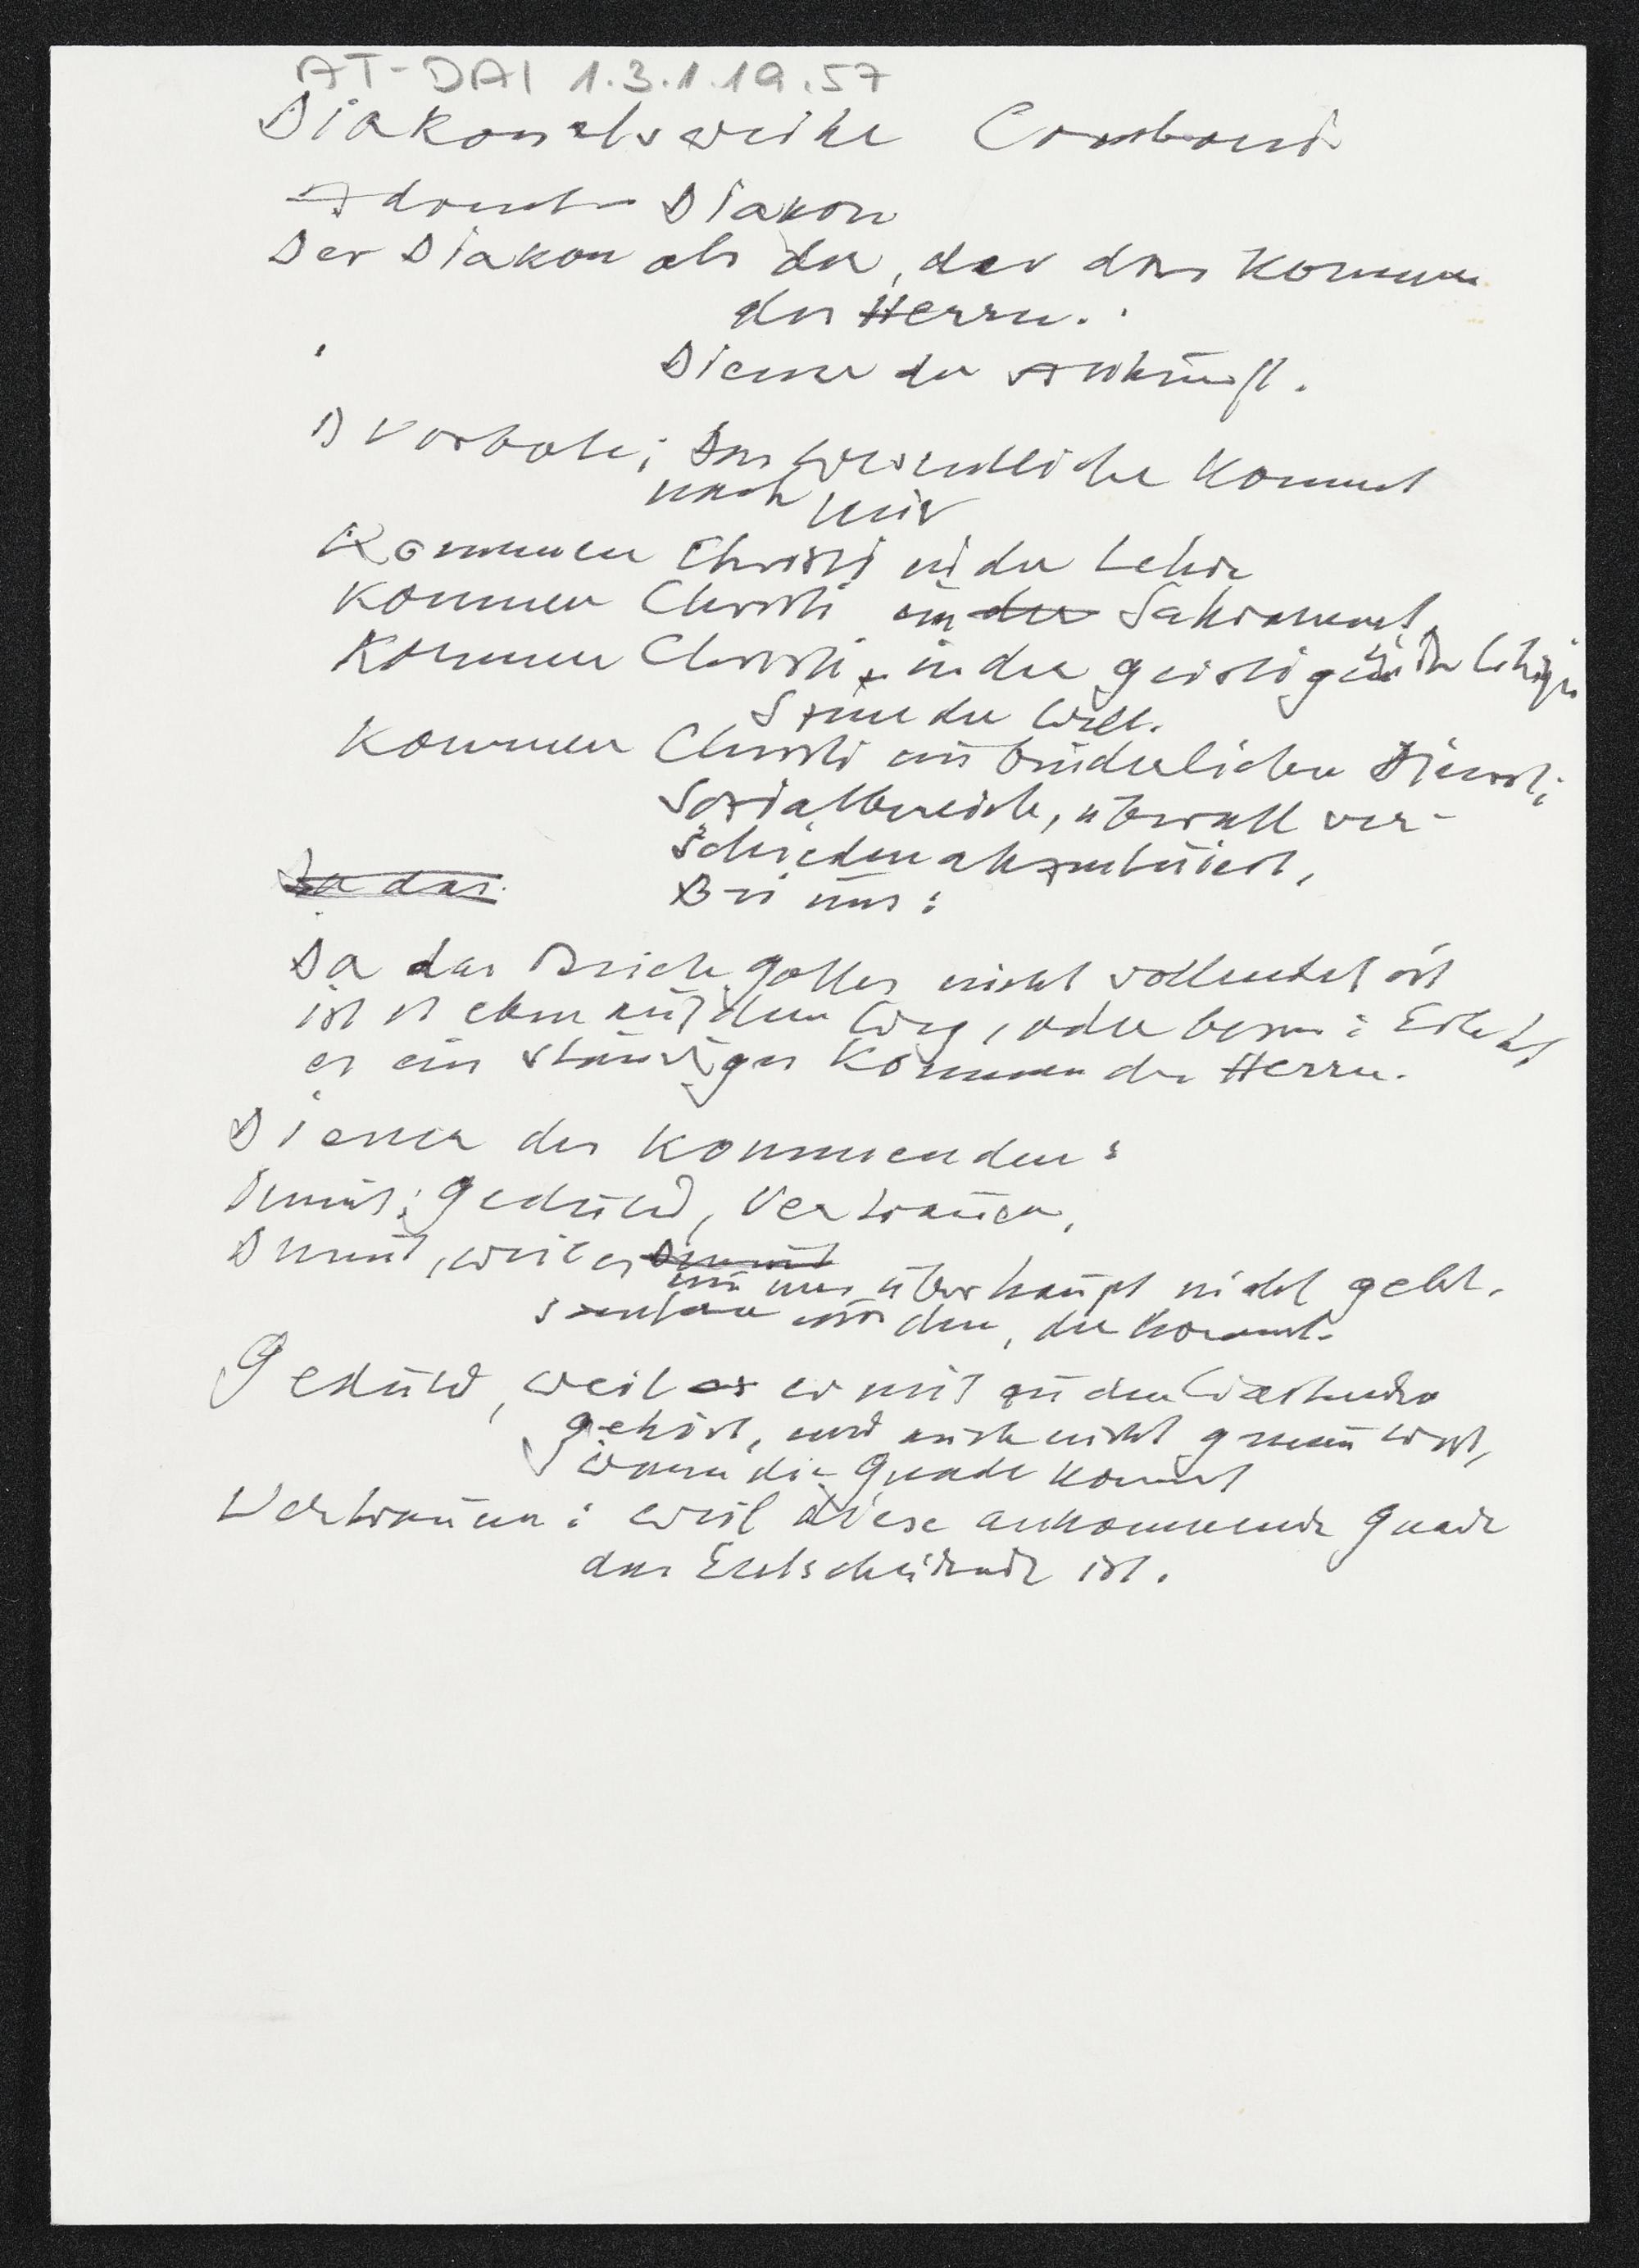 AT-DAI 1.3.1.19.57
Diakonatsweihe Comboni
Advent - Diakon
Der Diakon als der, der das Kommen
des Herrn.
Diener der Ankunft.
Vorbote; Das Wesentliche kommt
nach mir
Kommen Christi in der Lehre
Kommen Christi im der Sakrament
Kommen Christi in der geistigen
der Welt.
Kommen Christi im brüderlichen Dienst;
Sozialbereich, überall ver-
schieden akzentuiert,
Da das
Bei uns:
Da das Reich Gottes nicht vollendet ist
ist es eben auf dem Weg, oder besser: Erlebt
er ein ständiges Kommen des Herrn.
Diener des Kommenden:
Demut; Geduld, Vertrauen,
Demut, weil es Demut
um uns überhaupt nicht geht,
sondern um den, der kommt.
Geduld, weil es er mit zu den Wartenden
gehört, und auch nicht genau weiß,
wann die Gnade kommt
Vertrauen: weil diese ankommende Gnade
das Entscheidende ist.